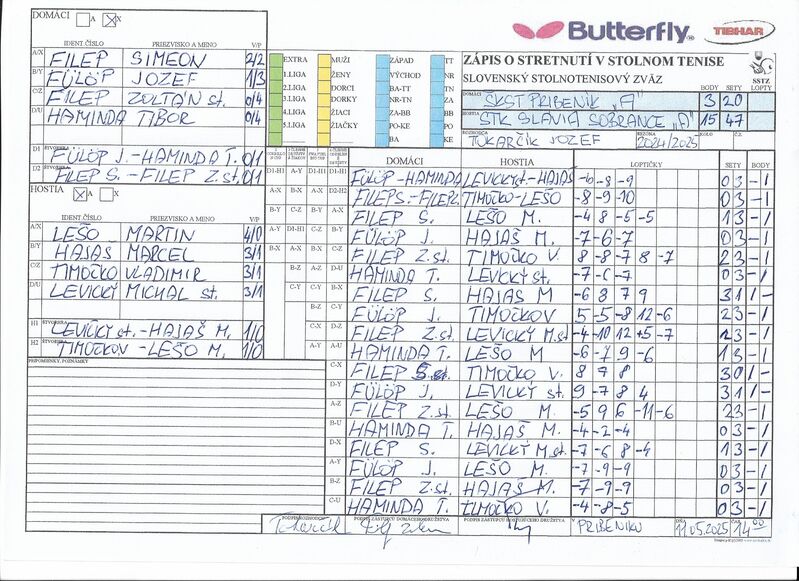 DOMÁCI A X
IDENT. ČÍSLO PRIEZVISKO A MENO V/P
A/X FILEP SIMEON 2/2
B/Y FÜLÖP JOZEF 1/3
C/Z FILEP ZOLTÁN st. 0/4
D/U HAMINDA TIBOR 0/4
D1 ŠTVORHRA FÜLÖP J.-HAMINDA T. 0/1
D2 ŠTVORHRA FILEP S.-FILEP Z.st. 0/1
HOSTIA A X
IDENT. ČÍSLO PRIEZVISKO A MENO V/P
A/X LEŠO MARTIN 4/0
B/Y HAJAŠ MARCEL 3/1
C/Z TIMOČKO VLADIMIR 3/1
D/U LEVICKÝ MICHAL st. 3/1
H1 ŠTVORHRA LEVICKÝ st.-HAJAŠ M. 1/0
H2 ŠTVORHRA TIMOČKOV-LEŠO M. 1/0
PRIPOMIENKY, POZNÁMKY
EXTRA MUŽI ZÁPAD TT
1.LIGA ŽENY VÝCHOD NR
2.LIGA DORCI BA-TT BN
3.LIGA DORKY NR-TN ZA
4.LIGA ŽIACI ZA-BB BB
5.LIGA ŽIAČKY PO-KE PO
BA KE
Butterfly TIBHAR
ZÁPIS O STRETNUTÍ V STOLNOM TENISE
SLOVENSKÝ STOLNOTENISOVÝ ZVÄZ SSTZ
BODY SETY LOPTY
DOMÁCI ŠKST PRIBENÍK "A" 3 20
HOSTIA STK SLAVIA SOBRANCE "A" 15 47
ROZHODCA TOKARČÍK JOZEF SEZÓNA 2024/2025 KOLO Č.
DOMÁCI HOSTIA LOPTIČKY SETY BODY
D1-H1 FÜLÖP-HAMINDA LEVICKÝ st.-HAJAS -6 -8 -9 03 -1
D2-H2 FILEP S.-FILEP Z. TIMOČKO-LEŠO -8 -9 -10 03 -1
A-X FILEP S. LEŠO M. -4 8 -5 -5 13 -1
B-Y FÜLÖP J. HAJAŠ M. -7 -6 -7 03 -1
C-Z FILEP Z.st TIMOČKO V. 8 -8 -7 8 -7 23 -1
D-U HAMINDA T. LEVICKÝ st. -7 -6 -7 03 -1
B-X FILEP S. HAJAS M -6 8 7 9 31 1-
C-Y FÜLÖP J. TIMOČKOV 5 5 -8 -12 -6 23 -1
D-Z FILEP Z.st LEVICKÝ M.st -4 -10 12 +5 -7 23 -1
A-U HAMINDA T. LEŠO M -6 -7 9 -6 13 -1
C-X FILEP S. TIMOČKO V. 8 9 8 30 1-
D-Y FÜLÖP J. LEVICKÝ st. 9 -7 8 4 31 1-
A-Z FILEP Z.st LEŠO M. -5 9 6 -11 -6 23 -1
B-U HAMINDA T. HAJAŠ M. -4 -2 -4 03 -1
D-X FILEP S. LEVICKÝ M.st. -7 -6 8 -4 13 -1
A-Y FÜLÖP J. LEŠO M. -7 -9 -9 03 -1
B-Z FILEP Z.st. HAJAŠ M. -7 -9 -9 03 -1
C-U HAMINDA T. TIMOČKO V. -4 -8 -5 03 -1
PODPIS ROZHODCU PODPIS ZÁSTUPCU DOMÁCEHO DRUŽSTVA PODPIS ZÁSTUPCU HOSŤUJÚCEHO DRUŽSTVA V PRIBENIKU DŇA 11.05.2025 ČAS 14 00